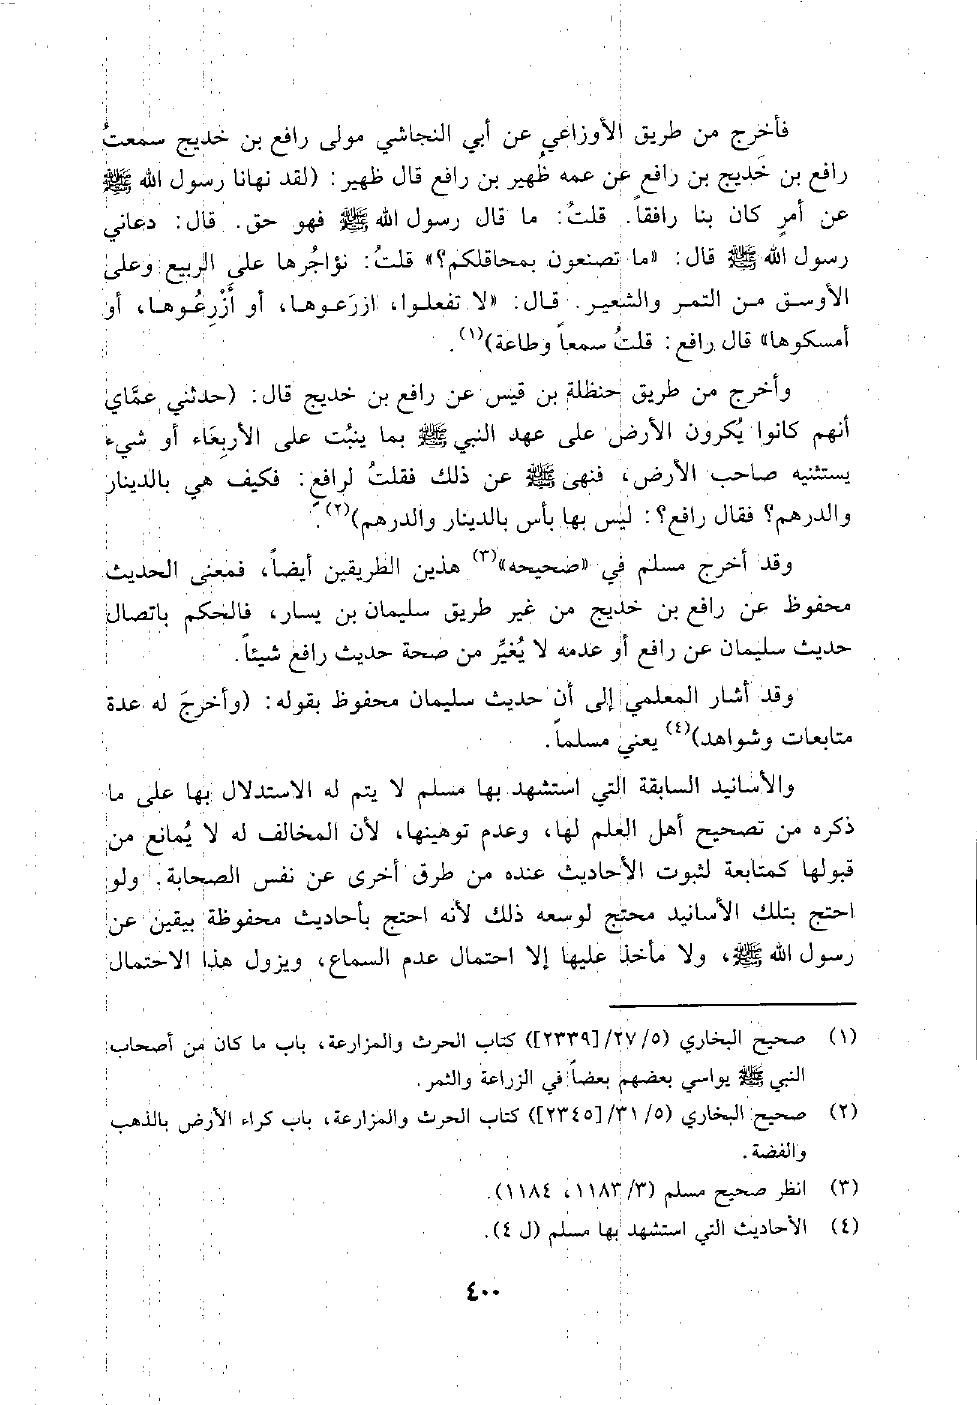 فأخرج من طريق الأوزاعي عن أبي النجاشي مولى رافع بن خديج سمعتُ
رافع بن خَديج بن رافع عن عمه ظُهير بن رافع قال ظهير: (لقد نهانا رسول الله ﷺ
عن أمرٍ كان بنا رافقاً. قلتُ: ما قال رسول الله ﷺ فهو حق. قال: دعاني
رسول الله ﷺ قال: «ما تصنعون بمحاقلكم؟» قلتُ: نؤاجُرها على الربيع وعلى
الأوسق من التمر والشعير. قال: «لا تفعلوا، ازرَعوها، أو أَزْرِعُوها، أو
أمسكوها» قال رافع: قلتُ سمعاً وطاعة)(١).
وأخرج من طريق حنظلة بن قيس عن رافع بن خديج قال: (حدثني عمَّاي
أنهم كانوا يُكرون الأرض على عهد النبي ﷺ بما ينبُت على الأربعَاء أو شيء
يستثنيه صاحب الأرض، فنهى ﷺ عن ذلك فقلتُ لرافع: فكيف هي بالدينار
والدرهم؟ فقال رافع؟: ليس بها بأس بالدينار والدرهم)(٢).
وقد أخرج مسلم في «صحيحه»(٣) هذين الطريقين أيضاً، فمعنى الحديث
محفوظ عن رافع بن خديج من غير طريق سليمان بن يسار، فالحكم باتصال
حديث سليمان عن رافع أو عدمه لا يُغيِّر من صحة حديث رافع شيئاً.
وقد أشار المعلمي إلى أن حديث سليمان محفوظ بقوله: (وأخرجَ له عدة
متابعات وشواهد)(٤) يعني مسلماً.
والأسانيد السابقة التي استشهد بها مسلم لا يتم له الاستدلال بها على ما
ذكره من تصحيح أهل العلم لها، وعدم توهينها، لأن المخالف له لا يُمانع من
قبولها كمتابعة لثبوت الأحاديث عنده من طرق أخرى عن نفس الصحابة. ولو
احتج بتلك الأسانيد محتج لوسعه ذلك لأنه احتج بأحاديث محفوظة بيقين عن
رسول الله ﷺ، ولا مأخذ عليها إلا احتمال عدم السماع، ويزول هذا الاحتمال
(١) صحيح البخاري (٥/ ٢٧/ [٢٣٣٩]) كتاب الحرث والمزارعة، باب ما كان من أصحاب
النبي ﷺ يواسي بعضهم بعضاً في الزراعة والثمر.
(٢) صحيح البخاري (٥/ ٣١/ [٢٣٤٥]) كتاب الحرث والمزارعة، باب كراء الأرض بالذهب
والفضة.
(٣) انظر صحيح مسلم (٣/ ١١٨٣، ١١٨٤).
(٤) الأحاديث التي استشهد بها مسلم (ل ٤).
٤٠٠